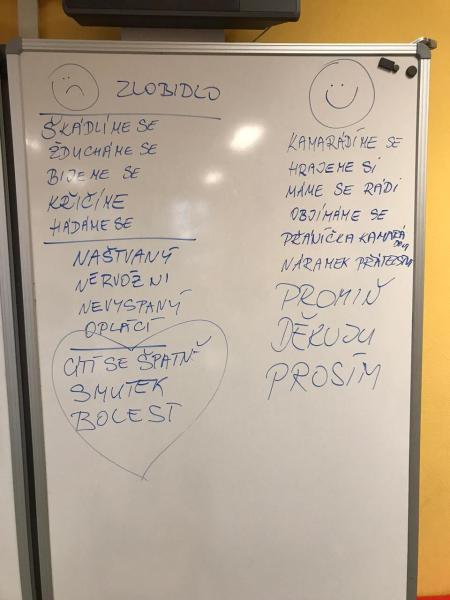 ZLOBIDLO
ŠKÁDLÍME SE
ŽDUCHÁME SE
BIJEME SE
KŘIČÍME
HÁDÁME SE
NAŠTVANÝ
NERVÓZNI
NEVYSPANÝ
OPLÁCÍ
CÍTÍ SE ŠPATNĚ
SMUTEK
BOLEST
KAMARÁDÍME SE
HRAJEME SI
MÁME SE RÁDI
OBJÍMÁME SE
PŘÁNÍČKA
NÁRAMEK
PROMIŇ
DĚKUJU
PROSÍM